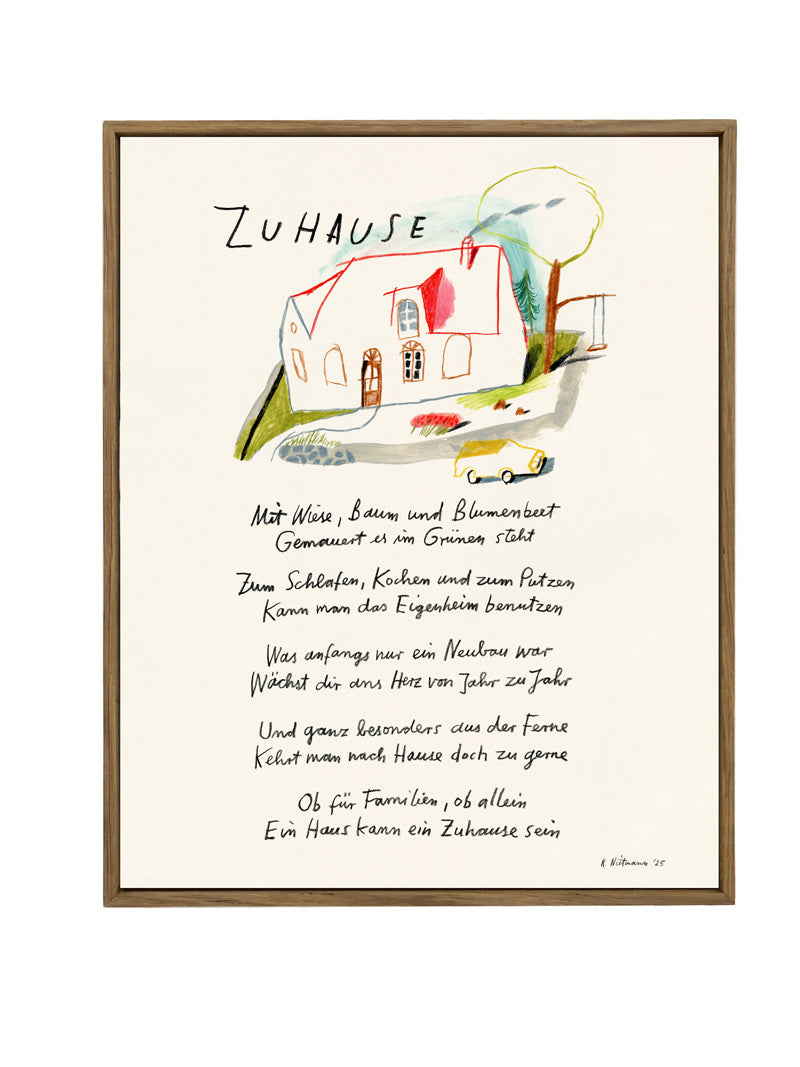 ZUHAUSE
Mit Wiese, Baum und Blumenbeet
Gemauert es im Grünen steht
Zum Schlafen, Kochen und zum Putzen
Kann man das Eigenheim benutzen
Was anfangs nur ein Neubau war
Wächst dir ans Herz von Jahr zu Jahr
Und ganz besonders aus der Ferne
Kehrt man nach Hause doch zu gerne
Ob für Familien, ob allein
Ein Haus kann ein Zuhause sein
R. Nietmann '25